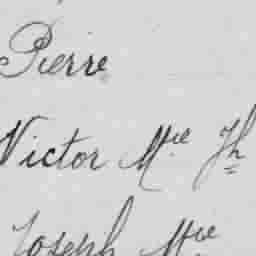 Pierre
Victor Mie Jh
Joseph Mie